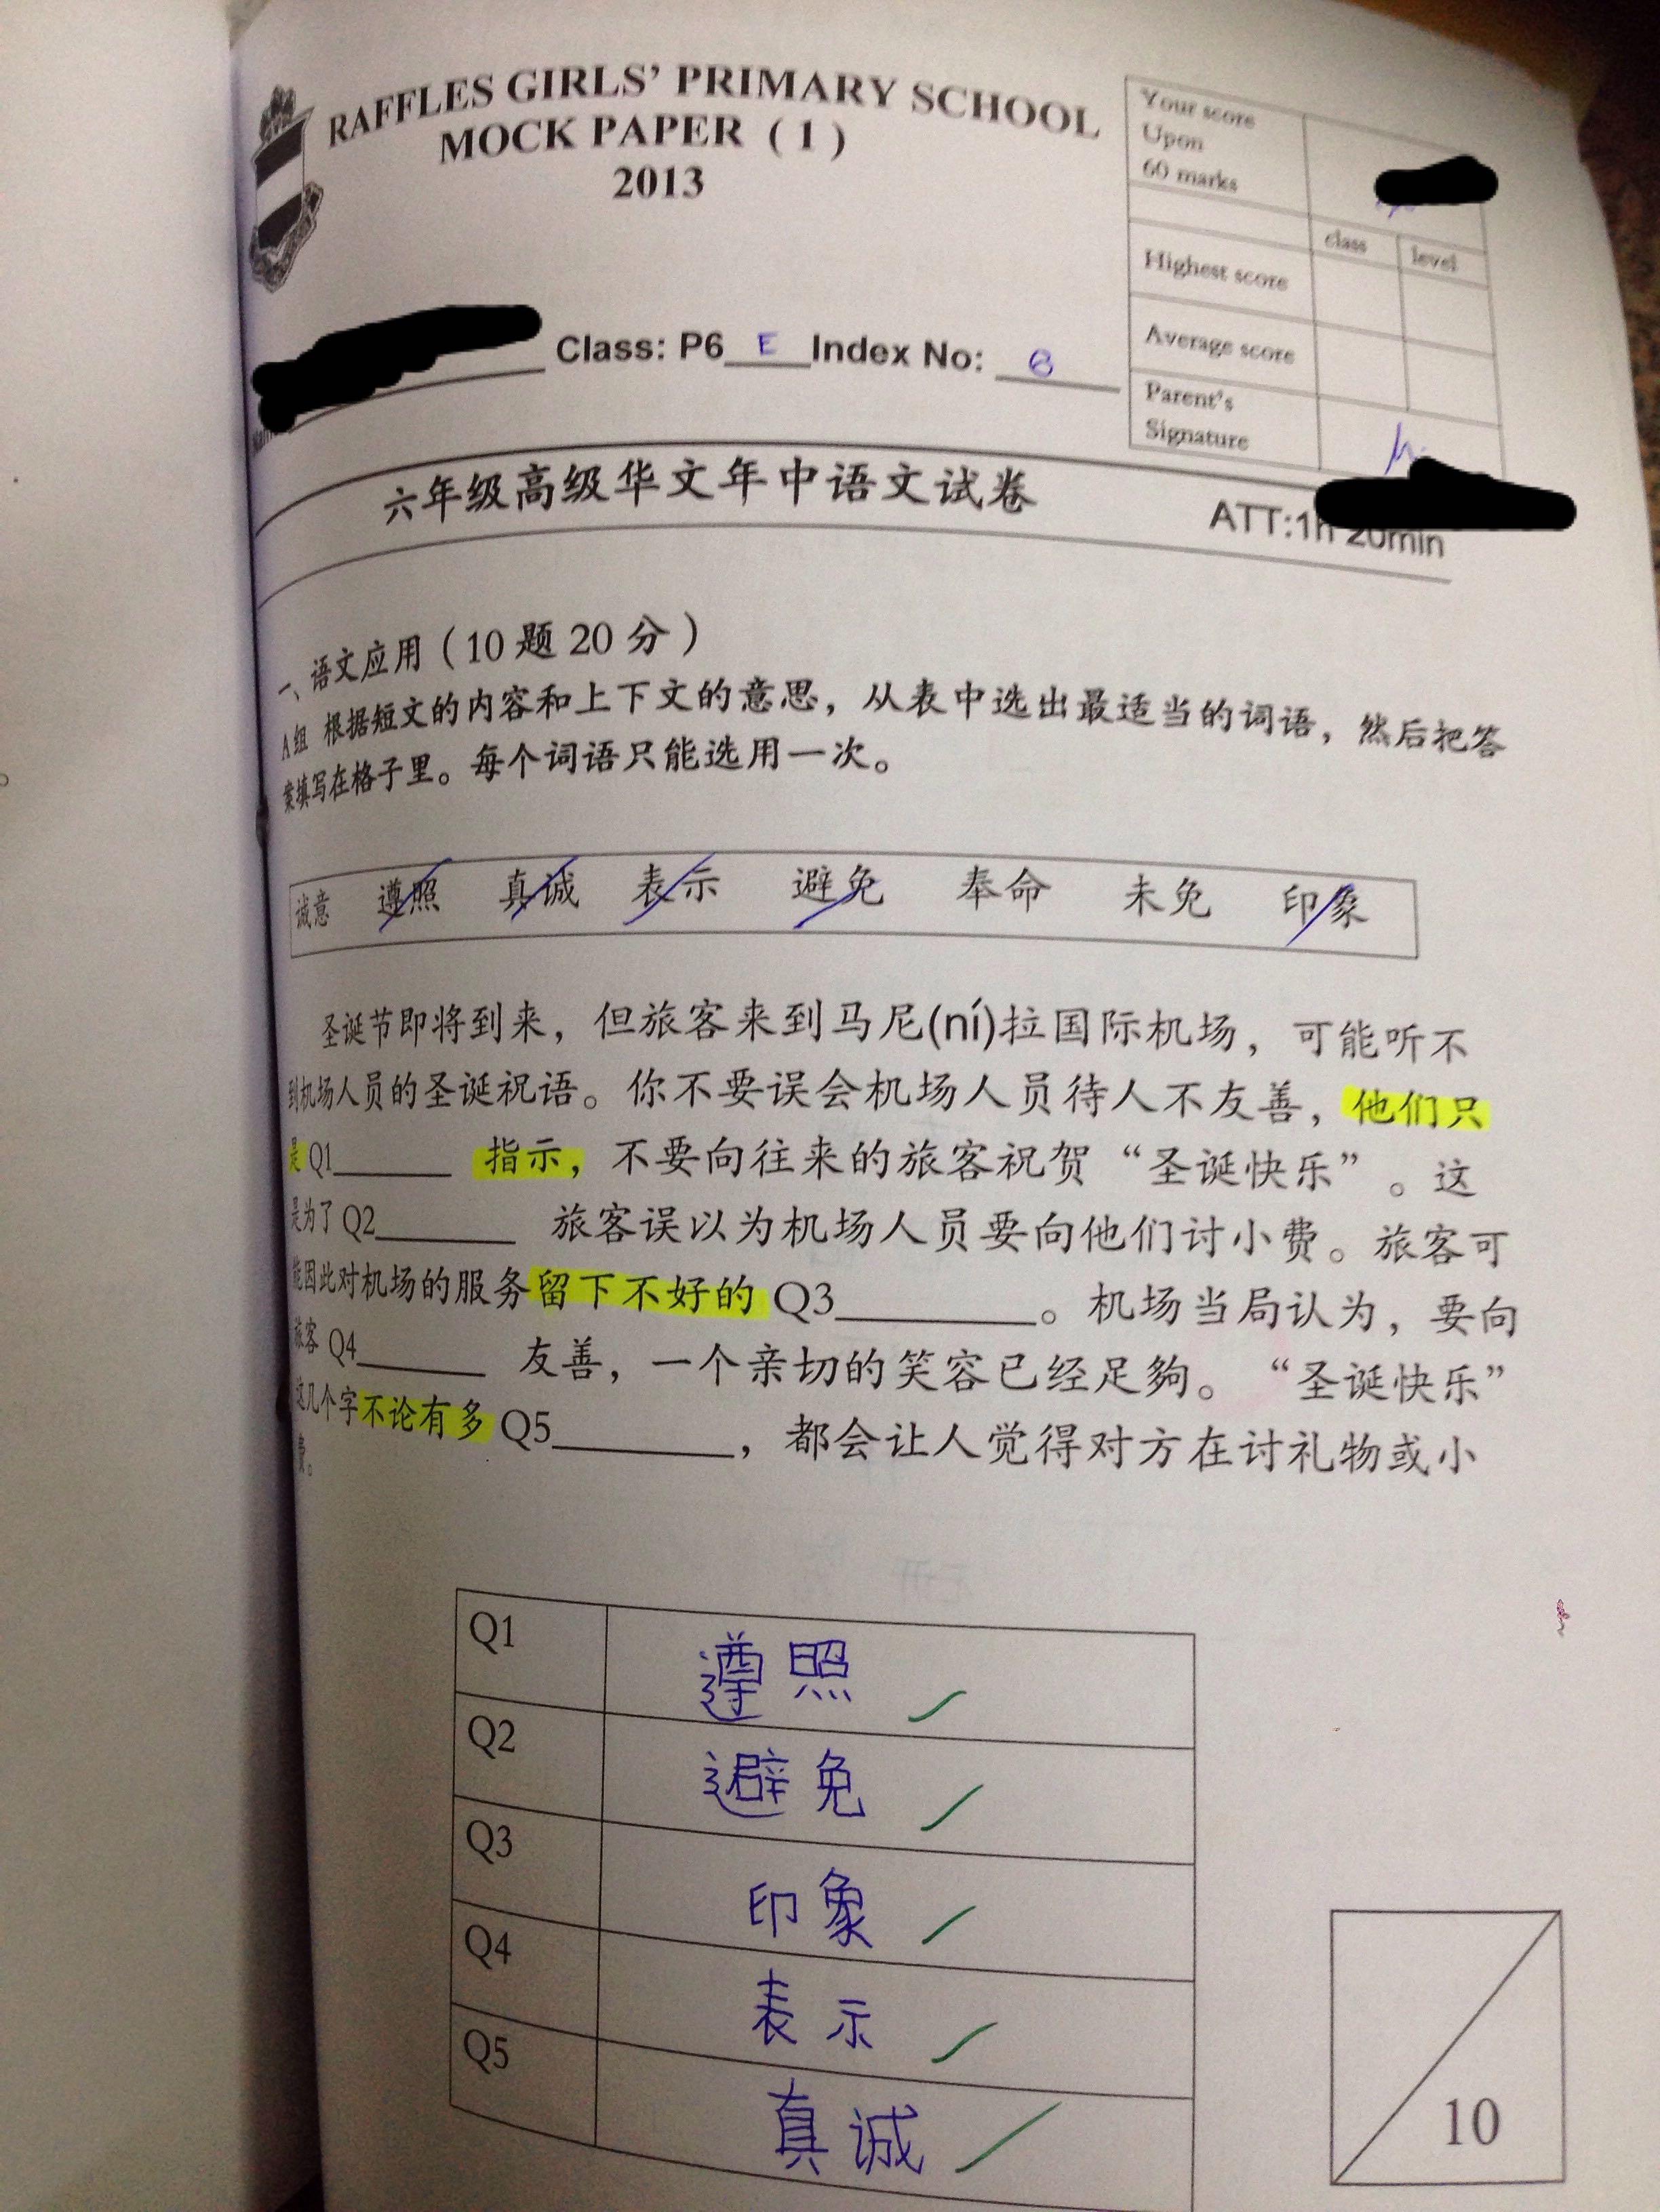 RAFFLES GIRLS' PRIMARY SCHOOL
MOCK PAPER ( 1 )
2013
Your score
Upon
60 marks
class level
Highest score
Average score
Parent's
Signature
Class: P6 E Index No: 8
六年级高级华文年中语文试卷
ATT:1h 20min
一、语文应用(10题20分)
A组 根据短文的内容和上下文的意思，从表中选出最适当的词语，然后把答
案填写在格子里。每个词语只能选用一次。
诚意 遵照 真诚 表示 避免 奉命 未免 印象
圣诞节即将到来，但旅客来到马尼(ní)拉国际机场，可能听不
到机场人员的圣诞祝语。你不要误会机场人员待人不友善，他们只
是 Q1______ 指示，不要向往来的旅客祝贺“圣诞快乐”。这
是为了 Q2______ 旅客误以为机场人员要向他们讨小费。旅客可
能因此对机场的服务留下不好的 Q3________。机场当局认为，要向
旅客 Q4______ 友善，一个亲切的笑容已经足够。“圣诞快乐”
这几个字不论有多 Q5________，都会让人觉得对方在讨礼物或小
费。
Q1 遵照
Q2 避免
Q3 印象
Q4 表示
Q5 真诚
10